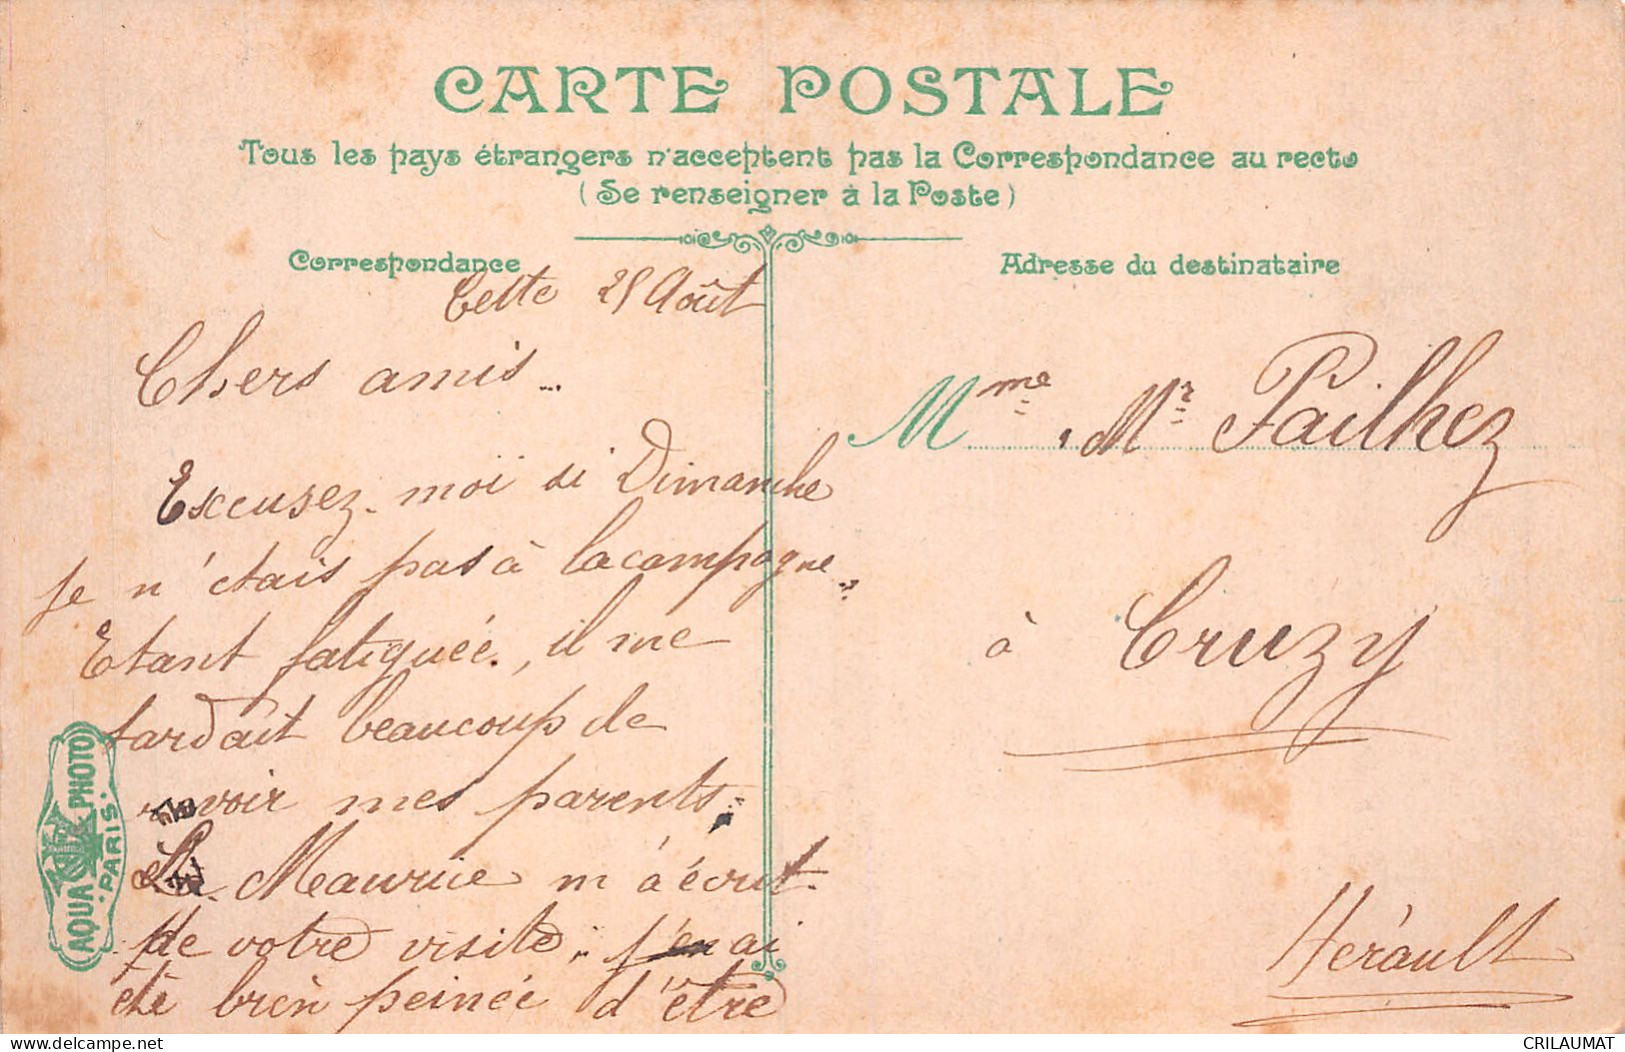 CARTE POSTALE
Tous les pays étrangers n'acceptent pas la Correspondance au recto
(Se renseigner à la Poste)
Correspondance
Cette 25 Août
Chers amis...
Excusez-moi si Dimanche
je n'étais pas à la campagne.
Etant fatiguée, il me
tardait beaucoup de
voir mes parents.
Maurice m'a écrit
de votre visite, j'en ai
été bien peinée d'être
Adresse du destinataire
Mme, Mr Pailhez
à Cruzy
Hérault
AQUA PHOTO
PARIS
delcampe.net
CRILAUMAT